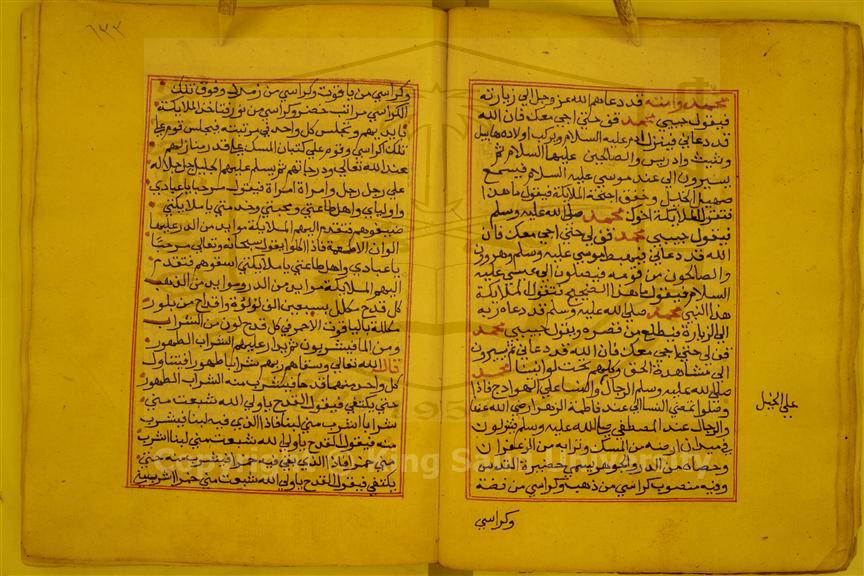 محمد وامته قد دعاهم الله عز وجل الى زيارته
فيقول حبيبي محمد قف حتى اجي معك فان الله
قد دعاني فينزل ادم عليه السلام ويركب اولاده هابيل
وشيث وادريس والصالحين عليهما السلام ثم
يسيرون الى عند موسى عليه السلام فيسمع
صهيل الخيل وخفق اجنحة الملايكة فيقول ما هذا
فتقول الملايكة اخوك محمد صلى الله عليه وسلم
فيقول حبيبي محمد قف لي حتى اجي معك فان
الله قد دعاني فيهبط موسى عليه وسلم وهرون
والصالحون من قومه فيصلون الى عيسى عليه
السلام فيقول ما هذا الضجيج فتقول الملايكة
هذا النبي محمد صلى الله عليه وسلم قد دعاه ربه
الى الزيارة فيطلع من قصره وينزل حبيبي محمد
قف لي حتى اجي معك فان الله قد دعاني ثم يسيرون
الى مشاهدة الحق وكلهم تحت لوا نبينا محمد
صلى الله عليه وسلم الرجال والنسا على الهوادج فاذا
وصلوا تمضي النسا الى عند فاطمة الزهرا رضي الله عنها
والرجال عند المصطفى صلى الله عليه وسلم فينزلون
في ميدان ارضه من المسك وترابه من الزعفران
وحصاه من الدر والجوهر اسمه حضيرة القدس
وفيه منصوب كراسي من ذهب وكراسي من فضة
على الخيل
وكراسي
٦٣٣
وكراسي من ياقوت وكراسي من زمرد وفوق تلك
الكراسي مراتب خضر وكراسي من نور فتاخذ الملايكة
بايديهم وتجلس كل واحد في مرتبته فيجلس قوم على
تلك الكراسي وقوم على كثبان المسك على قدر منازلهم
عند الله تعالى ودرجاتهم ثم يسلم عليهم الجليل جل جلاله
على رجل رجل وامراة امراة فيقول مرحبا يا عبادي
واوليايي واهل طاعتي ومحبتي وخدمتي يا ملايكتي
ضيفوهم فتقدم اليهم الملايكة موايد من الدر عليها
الوان الاطعمة فاذا اكلوا يقول سبحانه وتعالى مرحبا
يا عبادي واهل طاعتي يا ملايكتي اسقوهم فتقدم
اليهم الملايكة موايد من الدر وموايد من الذهب
كل قدح مكلل بسبعين الف لولوة واقداح من بلور
مكللة بالياقوت الاحمر في كل قدح لون من الشراب
ومن الما فيشربون ثم يدار عليهم الشراب الطهور
قال الله تعالى وسقاهم ربهم شرابا طهورا فيتناول
كل واحد منهما قدحا فيشرب منه الشراب الطهور
حتى يكتفي فيقول القدح يا ولي الله شبعت مني
شرابا اشرب مني لبنا فاذا الذي فيه لبنا فيشرب
منه فيقول القدح يا ولي الله شبعت مني لبنا اشرب
مني خمرا فاذا الذي فيه خمر فيشرب منه حتى
يكتفي فيقول القدح يا ولي الله شبعت مني خمرا اشرب
Copyright © King Saud University
1957